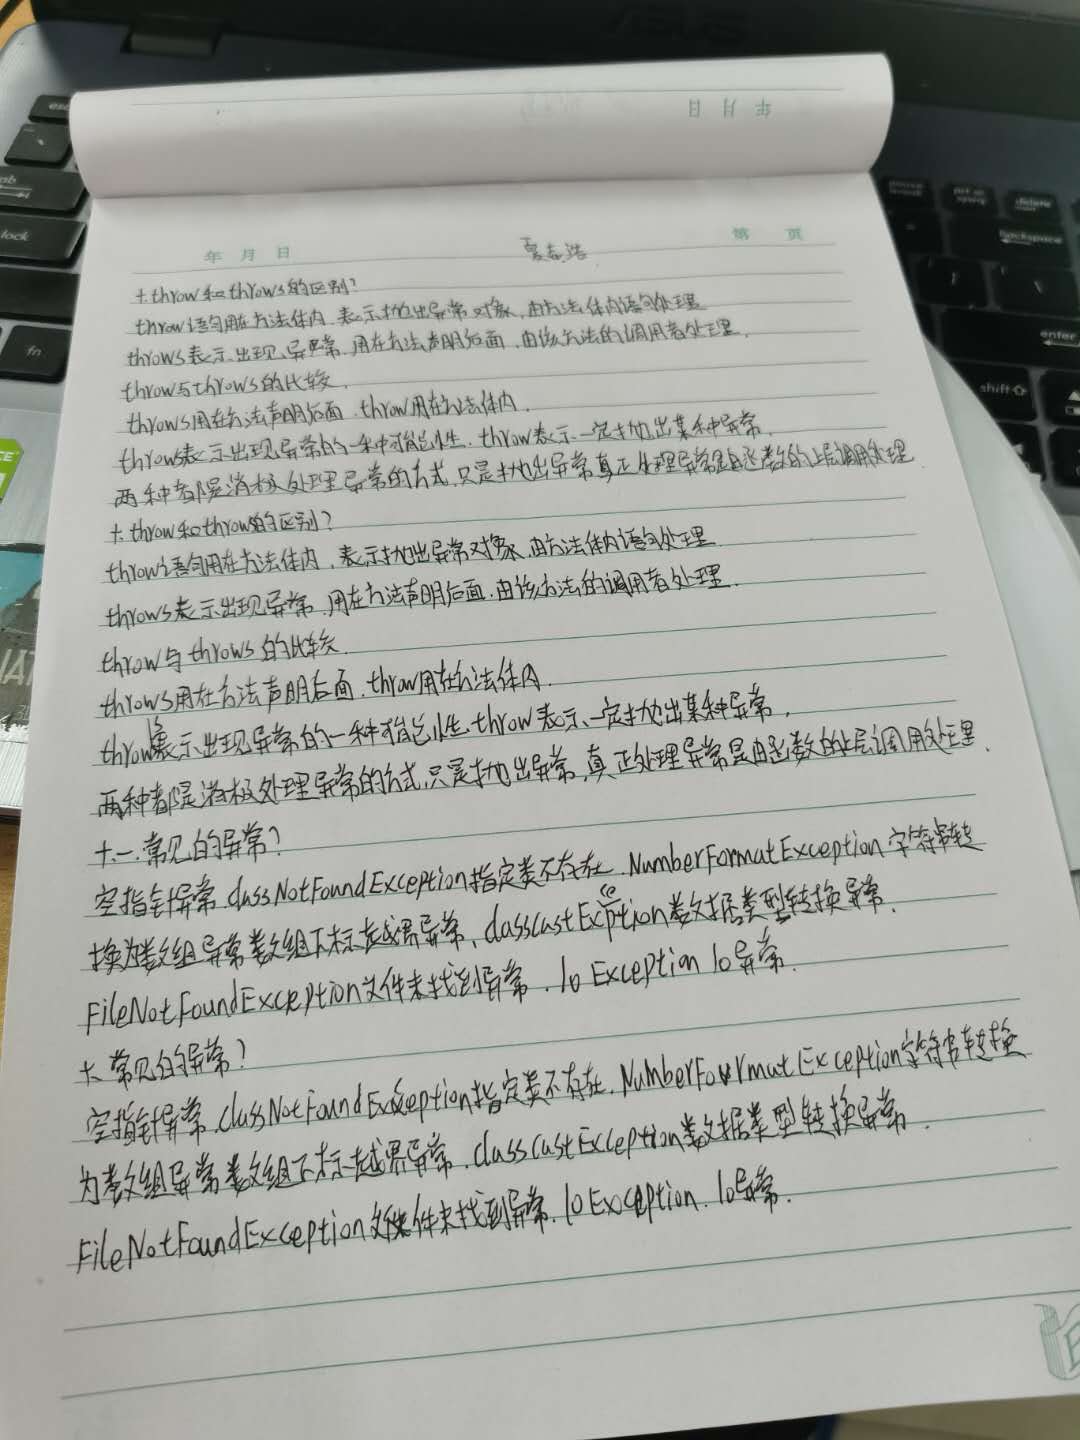 年 月 日
年 月 日
夏志浩
第 页
十.throw和throws的区别?
throw语句用在方法体内,表示抛出异常对象,由方法体内语句处理
throws表示出现异常,用在方法声明后面,由该方法的调用者处理.
throw与throws的比较.
throws用在方法声明后面.throw用在方法体内.
throws表示出现异常的一种可能性.throw表示一定抛出某种异常.
两种都是消极处理异常的方式,只是抛出异常真正处理异常是由函数的上层调用处理
十.throw和throws的区别?
throw语句用在方法体内,表示抛出异常对象,由方法体内语句处理
throws表示出现异常,用在方法声明后面.由该方法的调用者处理.
throw与throws的比较.
throws用在方法声明后面.throw用在方法体内.
throws表示出现异常的一种可能性.throw表示一定抛出某种异常.
两种都是消极处理异常的方式,只是抛出异常,真正处理异常是由函数的上层调用处理.
十一.常见的异常?
空指针异常.classNotFoundException指定类不存在.NumberFormatException字符串转
换为数组异常数组下标越界异常,classcastException数据类型转换异常.
FileNotFoundException文件未找到异常.IoException Io异常.
十.常见的异常?
空指针异常.classNotFoundException指定类不存在.NumberFourmatException字符串转换
为数组异常数组下标越界异常.classcastException数据类型转换异常.
FileNotFoundException文件未找到异常.IoException.Io异常.
esc
tab
lock
fn
backspace
enter
shift
delete